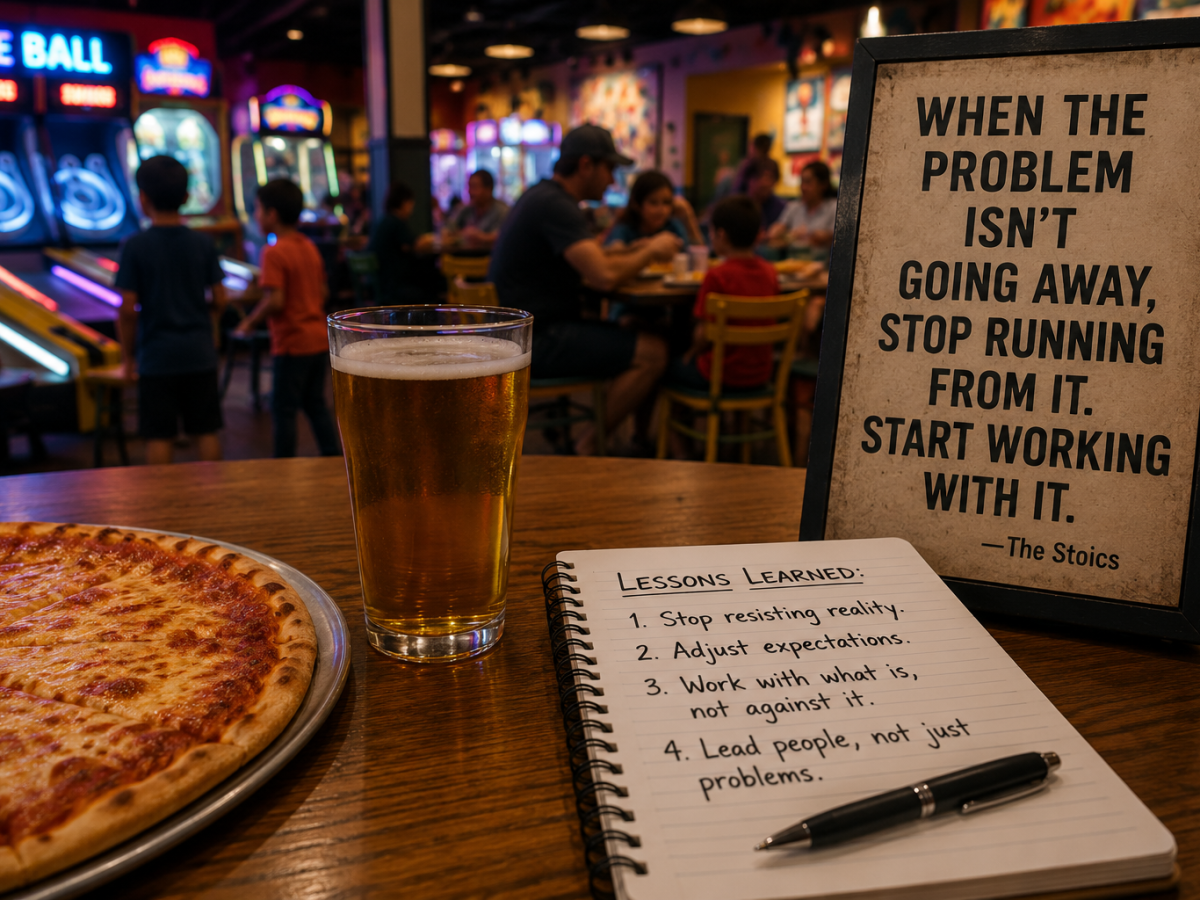 E BALL
WHEN THE
PROBLEM
ISN'T
GOING AWAY,
STOP RUNNING
FROM IT.
START WORKING
WITH IT.
—The Stoics
LESSONS LEARNED:
1. Stop resisting reality.
2. Adjust expectations.
3. Work with what is,
not against it.
4. Lead people, not just
problems.